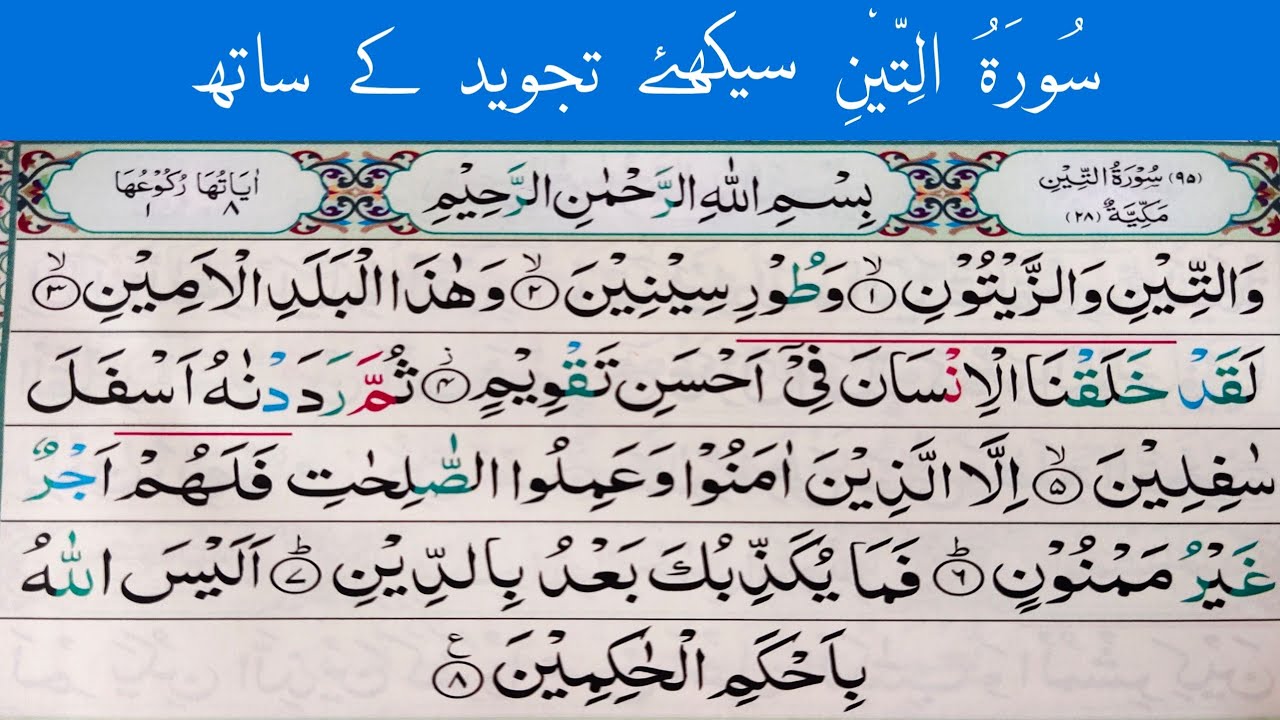 سُورَةُ التِّيْنِ سیکھئے تجوید کے ساتھ
(٩٥) سُوْرَةُ التِّيْنِ
مَكِّيَّةٌ (٢٨)
بِسْمِ اللّٰهِ الرَّحْمٰنِ الرَّحِيْمِ
اٰيَاتُهَا ٨ رُكُوْعُهَا ١
وَالتِّيْنِ وَالزَّيْتُوْنِ ۙ﴿١﴾ وَطُوْرِ سِيْنِيْنَ ۙ﴿٢﴾ وَهٰذَا الْبَلَدِ الْاَمِيْنِ ۙ﴿٣﴾
لَقَدْ خَلَقْنَا الْاِنْسَانَ فِيْٓ اَحْسَنِ تَقْوِيْمٍ ۡ﴿٤﴾ ثُمَّ رَدَدْنٰهُ اَسْفَلَ
سٰفِلِيْنَ ۙ﴿٥﴾ اِلَّا الَّذِيْنَ اٰمَنُوْا وَعَمِلُوا الصّٰلِحٰتِ فَلَهُمْ اَجْرٌ
غَيْرُ مَمْنُوْنٍ ؕ﴿٦﴾ فَمَا يُكَذِّبُكَ بَعْدُ بِالدِّيْنِ ؕ﴿٧﴾ اَلَيْسَ اللّٰهُ
بِاَحْكَمِ الْحٰكِمِيْنَ ﴿٨﴾ ع